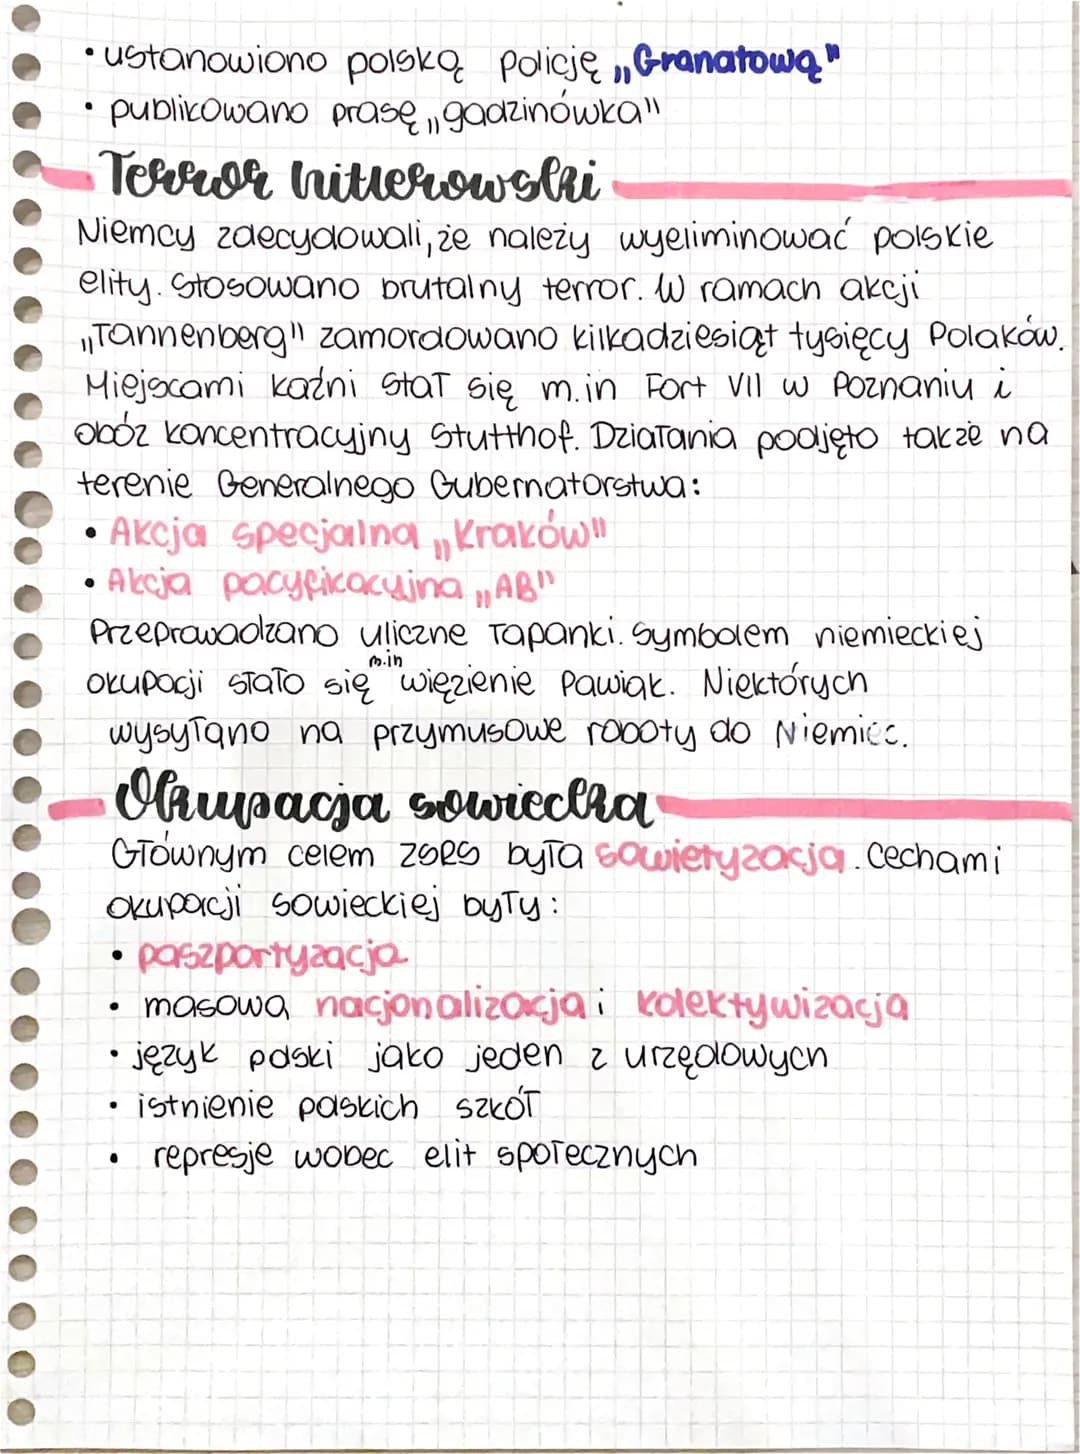 • ustanowiono polską policję „Granatową"
• publikowano prasę „gadzinówka"
Terror hitlerowski
Niemcy zdecydowali, że należy wyeliminować polskie
elity. Stosowano brutalny terror. W ramach akcji
„Tannenberg" zamordowano kilkadziesiąt tysięcy Polaków.
Miejscami kaźni stał się m.in Fort VII w Poznaniu i
obóz koncentracyjny Stutthof. Działania podjęto także na
terenie Generalnego Gubernatorstwa:
• Akcja specjalna „Kraków"
• Akcja pacyfikacyjna „AB"
Przeprowadzano uliczne łapanki. Symbolem niemieckiej
okupacji stało się m.in więzienie Pawiak. Niektórych
wysyłano na przymusowe roboty do Niemiec.
Okupacja sowiecka
Głównym celem ZSRS była sowietyzacja. Cechami
okupacji sowieckiej były:
• paszportyzacja
• masowa nacjonalizacja i kolektywizacja
• język polski jako jeden z urzędowych
• istnienie polskich szkół
• represje wobec elit społecznych